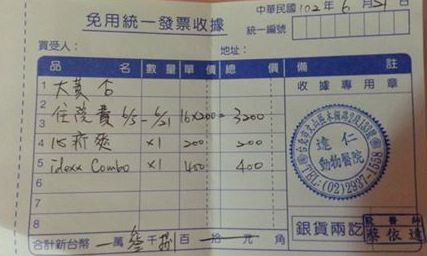 免用統一發票收據
中華民國102年6月21日
統一編號
買受人：
地址：
品名 數量 單價 總價 備註
1 大黃 台
2
3 住院費 6/5-6/21 16×200= 3200
4 心新爽 ×1 200 200
5 idexx Combo ×1 400 400
6
7
8
收據專用章
達仁
動物醫院
TEL:(02)2937-1568
銀貨兩訖
獸醫師
蔡依達
合計新台幣 萬 參千捌百 十 元 角